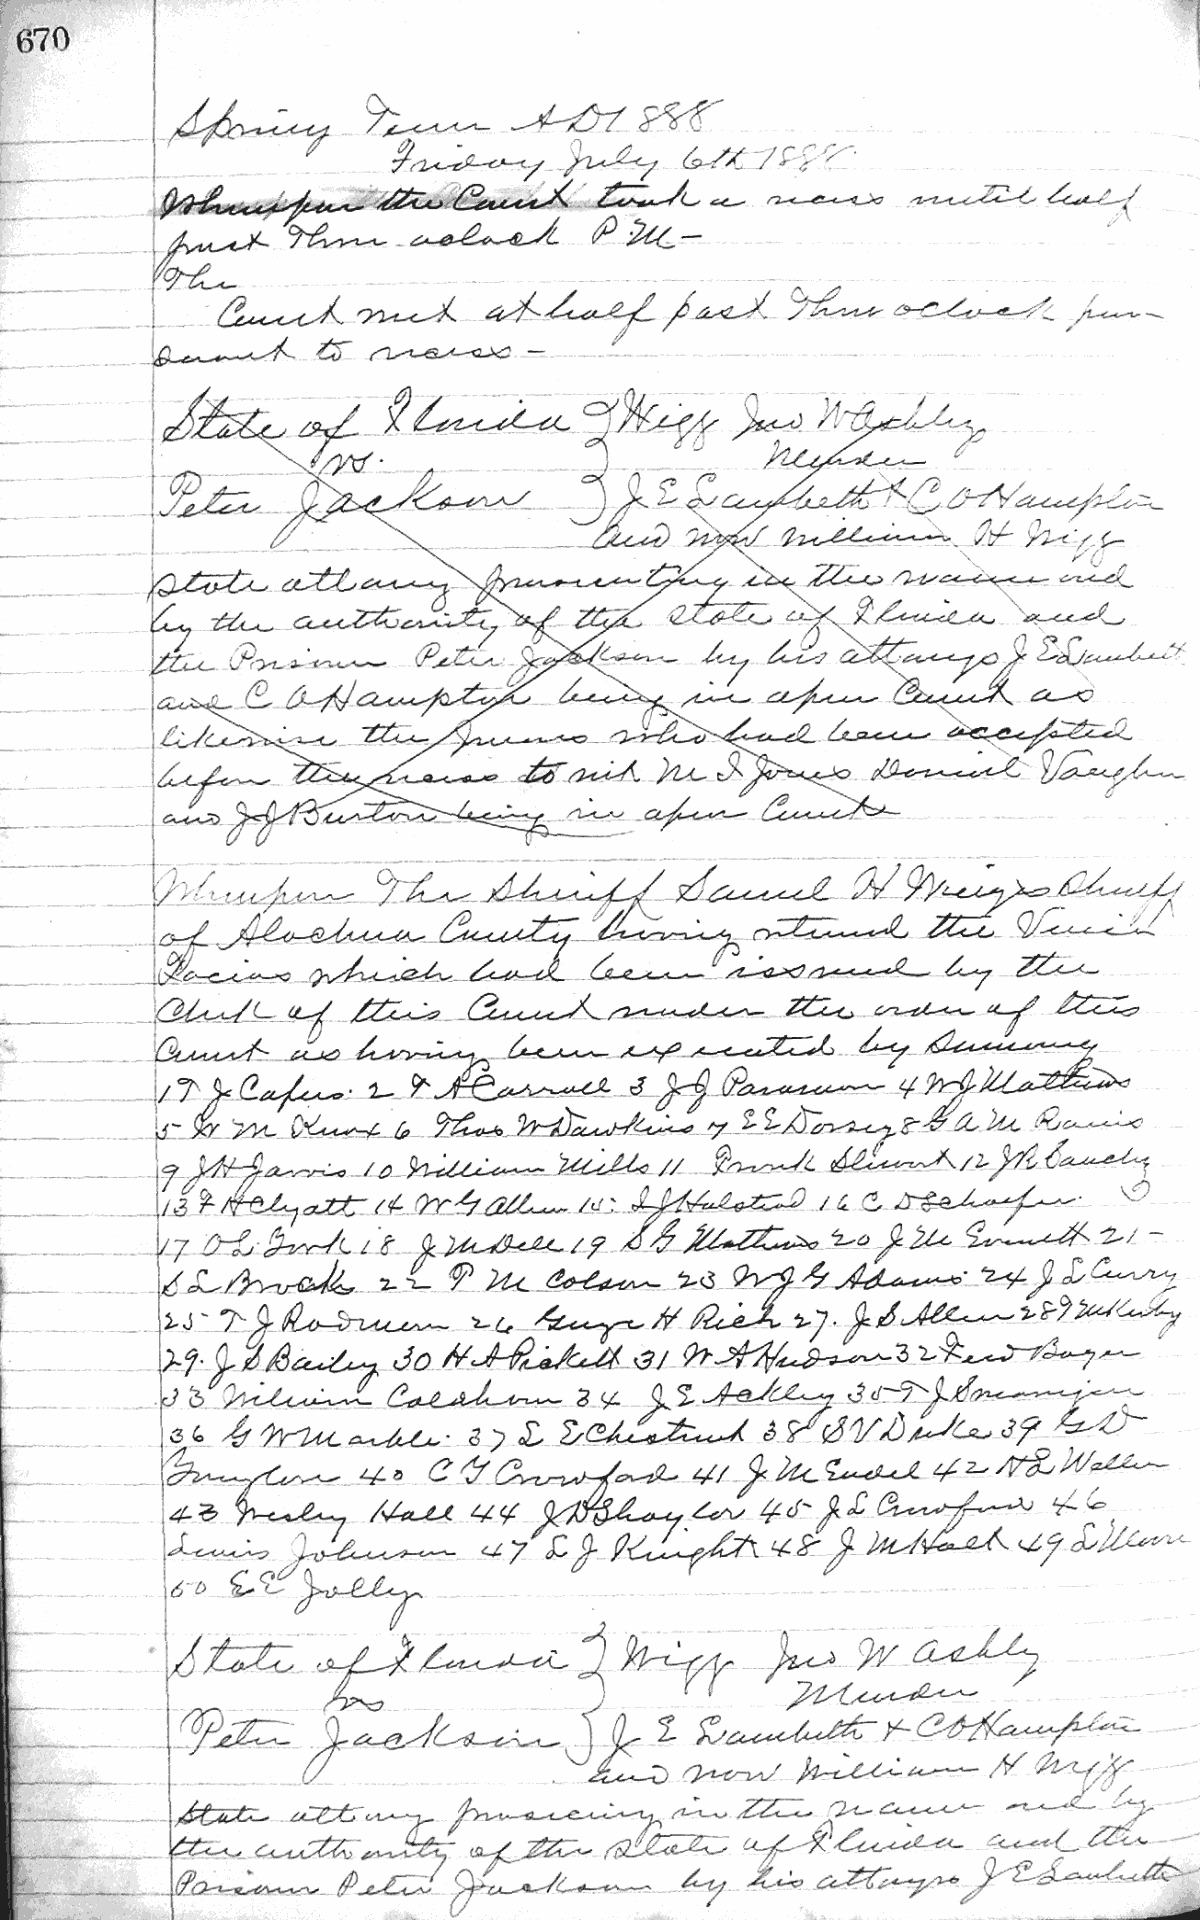 670
Spring Term AD 1888
Friday July 6th 1888
Whereupon the Court took a recess until half
past Three oclock P.M -
The
Court met at half past Three oclock pur-
suant to recess -
State of Florida } Wigg Jno W Ashby
vs. Murder
Peter Jackson } J E Lambeth & C O Hampton
and now William H Wigg
state attorney prosecuting in the name and
by the authority of the State of Florida and
the Prisoner Peter Jackson by his attorneys J E Lambeth
and C O Hampton being in open Court as
likewise the jurors who had been accepted
before the recess to wit M I Jones Daniel Vaughn
and J J Burton being in open Court
Whereupon The Sheriff Samuel H Wienges Sheriff
of Alachua County having returned the Venire
Facias which had been issued by the
Clerk of this Court under the order of this
Court as having been executed by Summong
1 T J Capers 2 F A Carroll 3 J J 4 W J Mathews
5 W M Knox 6 Thos W Dawkins 7 E E Dorsey 8 G A M
9 J H Jarvis 10 William Mills 11 Frank Stewart 12 J R
13 F H Clyatt 14 W G Allen 15 I J Halstead 16 C D Schaefer
17 O L York 18 J M Dell 19 S G Mathews 20 J M Emmett 21 -
S L Brock 22 T M Colson 23 W J G Adams 24 J L Curry
25 T J Rodman 26 George H Rich 27. J S Allen 28 T M Kirby
29. J S Bailey 30 H A Pickett 31 W A Hudson 32 Ferd Bayer
33 William Calahoun 34 J E Ackley 35 T J Swearingen
36 G W Markle 37 L E Chestnut 38 S V Duke 39 G D
40 C G Crawford 41 J M Endel 42 N L Weller
43 Wesley Hall 44 J D Shaylor 45 J L Crawford 46
Lewis Johnson 47 L J Knight 48 J M Holt 49 L Moore
50 E E Jolly
State of Florida } Wigg Jno W Ashby
vs Murder
Peter Jackson } J E Lambeth & C O Hampton
and now William H Wigg
State attorney prosecuting in the name and by
the authority of the State of Florida and the
Prisoner Peter Jackson by his attorneys J E Lambeth